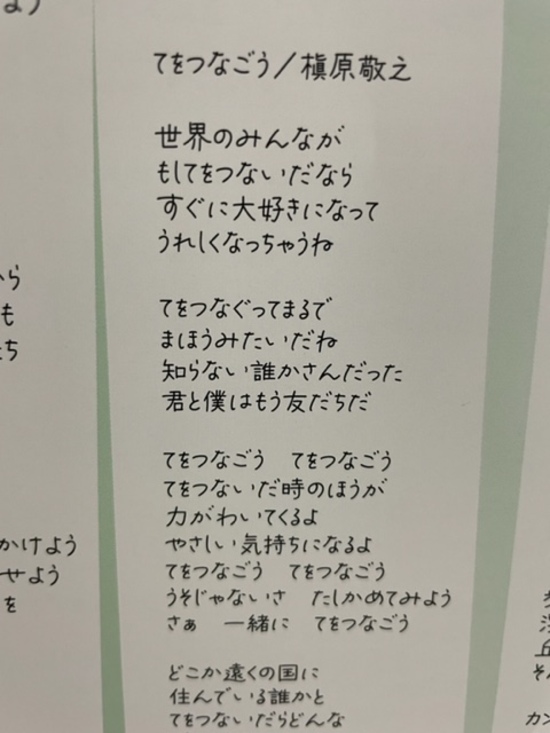 てをつなごう/槇原敬之
世界のみんなが
もしてをつないだなら
すぐに大好きになって
うれしくなっちゃうね
てをつなぐってまるで
まほうみたいだね
知らない誰かさんだった
君と僕はもう友だちだ
てをつなごう　てをつなごう
てをつないだ時のほうが
力がわいてくるよ
やさしい気持ちになるよ
てをつなごう　てをつなごう
うそじゃないさ　たしかめてみよう
さぁ　一緒に　てをつなごう
どこか遠くの国に
住んでいる誰かと
てをつないだらどんな
から
も
かけよう
せよう
を